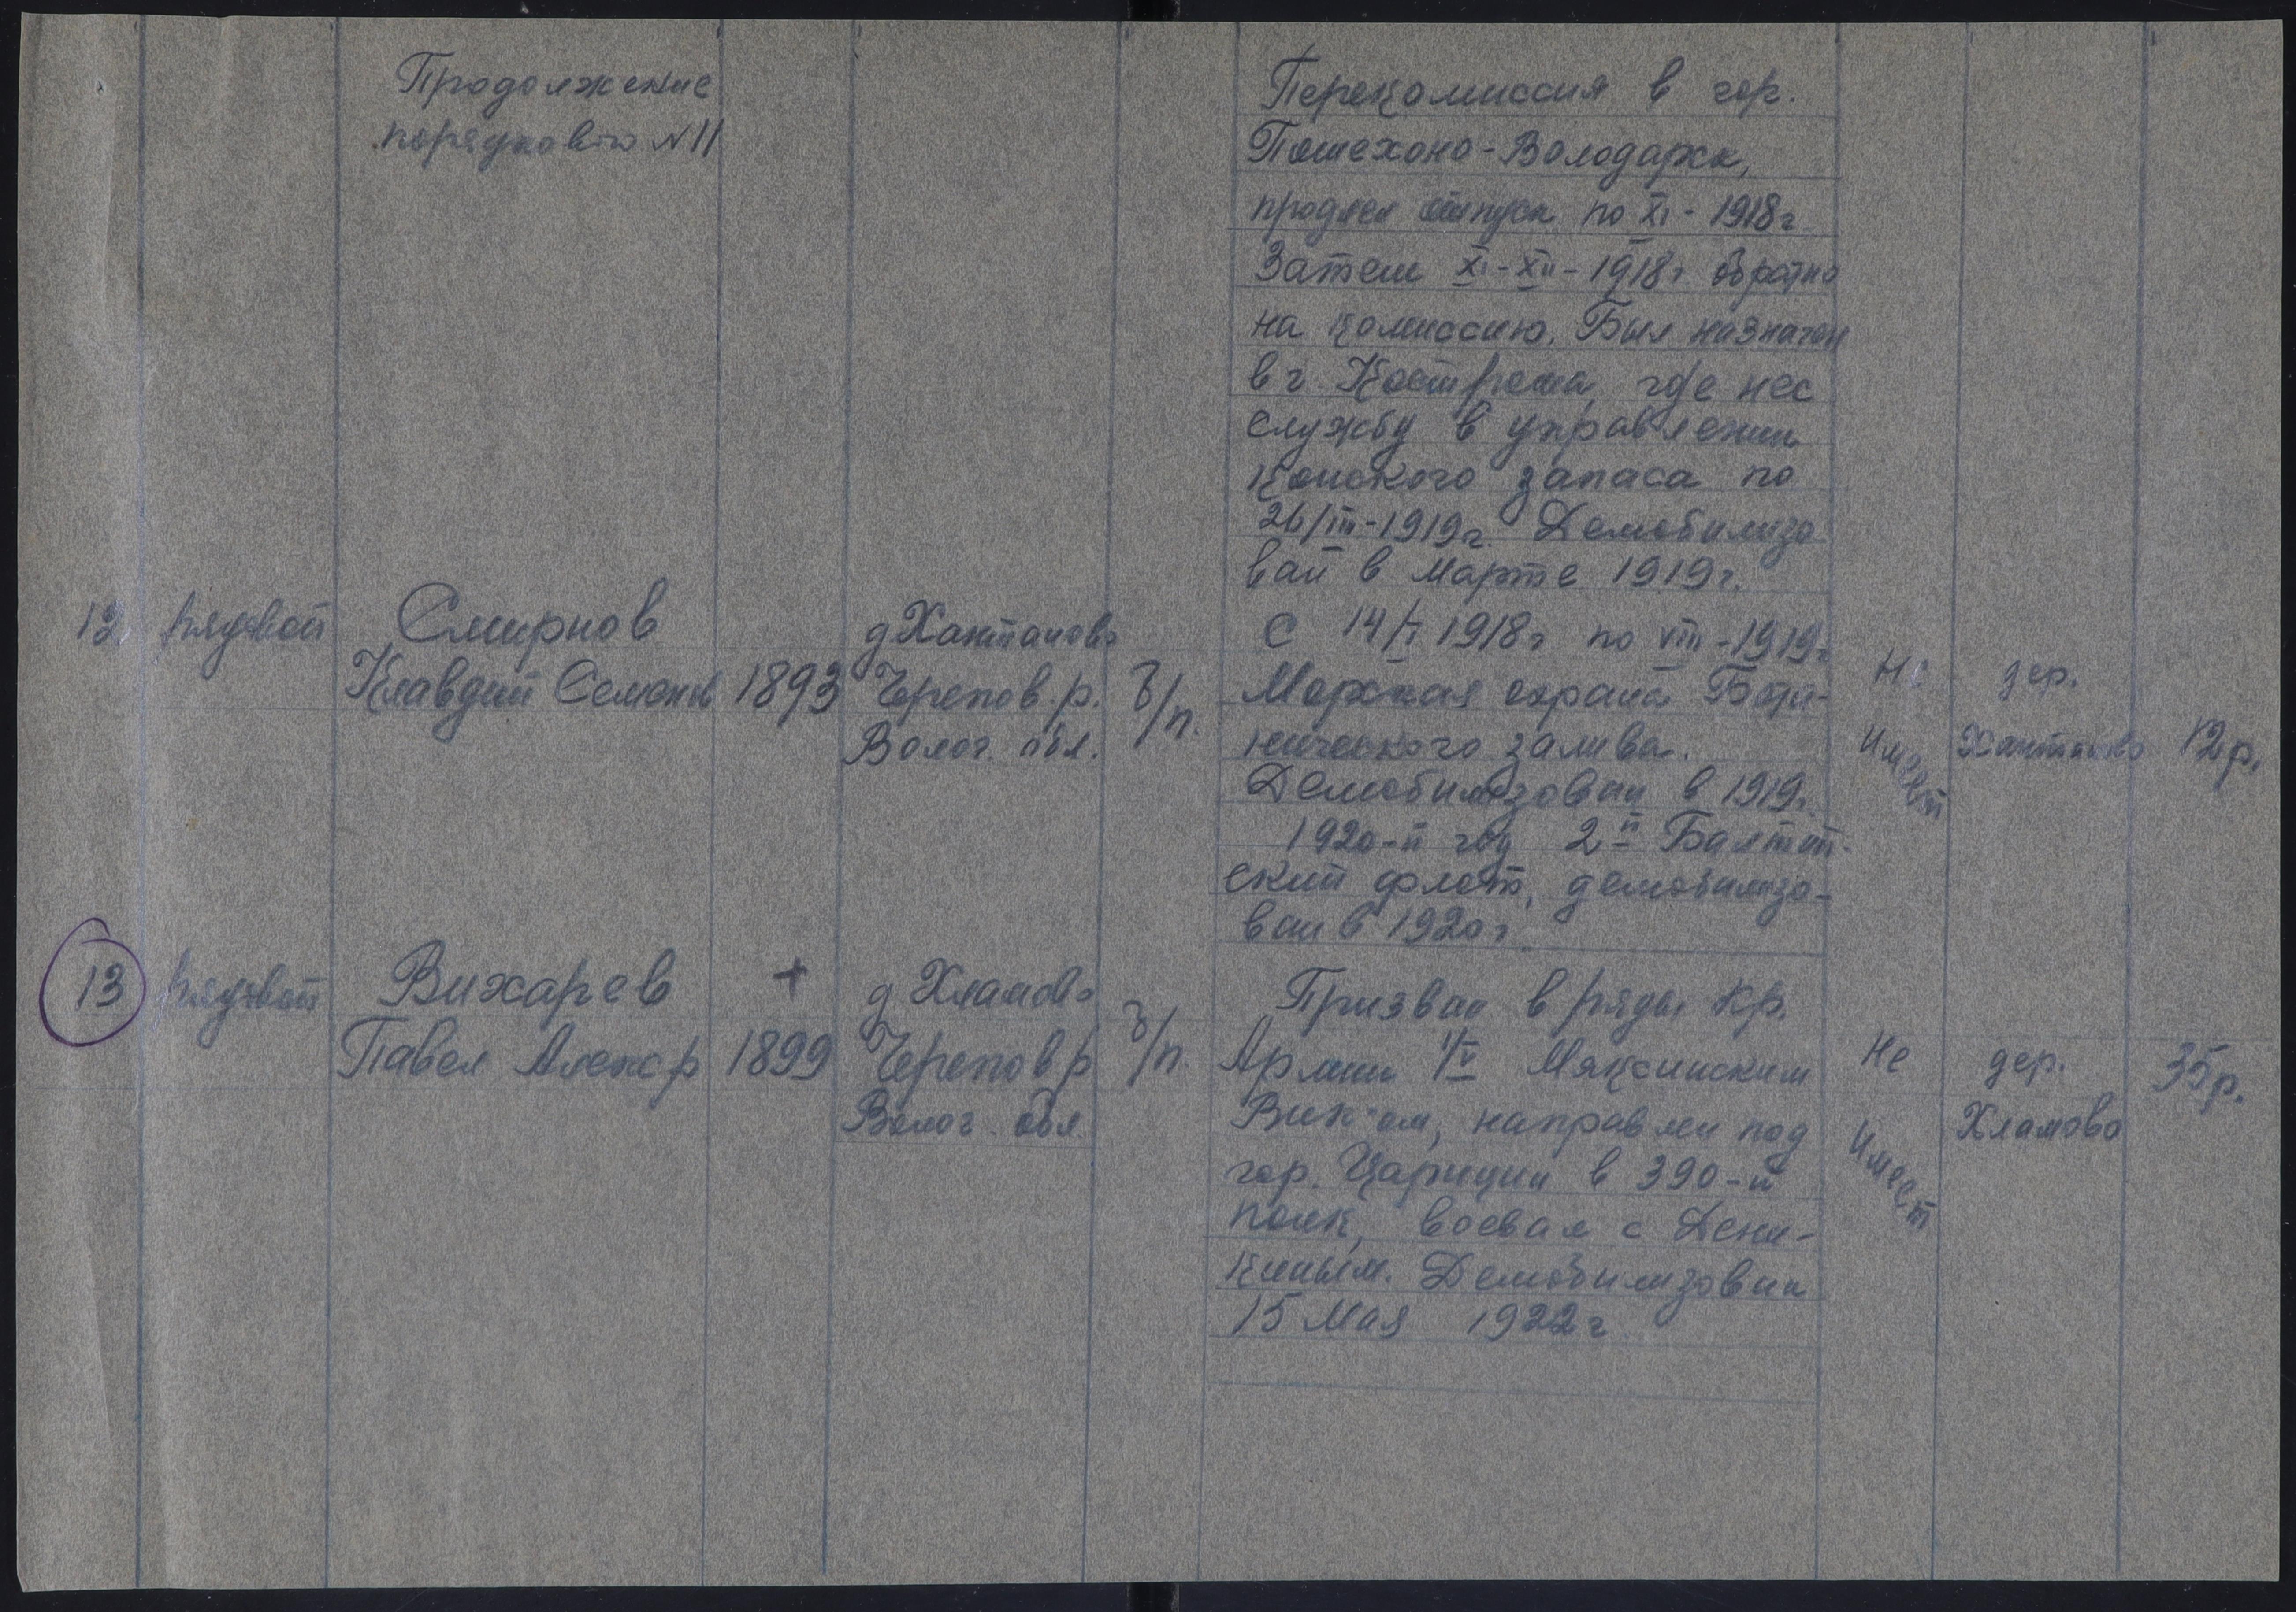 Продолжение
порядково № 11
Перекомиссия в гор.
Пошехоно-Володарск,
продлен отпуск по XI - 1918 г
Затем XI-XII-1918 г обратно
на комиссию. Был назначен
в г. Кострома, где нес
службу в управлении
конского запаса по
26/III-1919 г. Демобилизо
ван в Марте 1919 г.
12 рядовой Смирнов д Хантаново С 14/I 1918 г по VIII-1919 г
Клавдий Семенов 1893 Черепов. р. б/п. Морская охрана Бота- Не дер.
Волог. обл. нического залива. имеет Хантаново 12 р.
Демобилизован в 1919 г.
1920-й год 2-й Балтий-
ский флот, демобилизо-
ван в 1920 г.
13 рядовой Вихарев + д Хламово Призван в ряды Кр.
Павел Алекср 1899 Черепов р б/п. Армии 1/V Мяксинским Не дер. 35 р.
Волог. обл Вик-ом, направлен под имеет Хламово
гор. Царицин в 390-й
полк, воевал с Дени-
киным. Демобилизован
15 Мая 1922 г